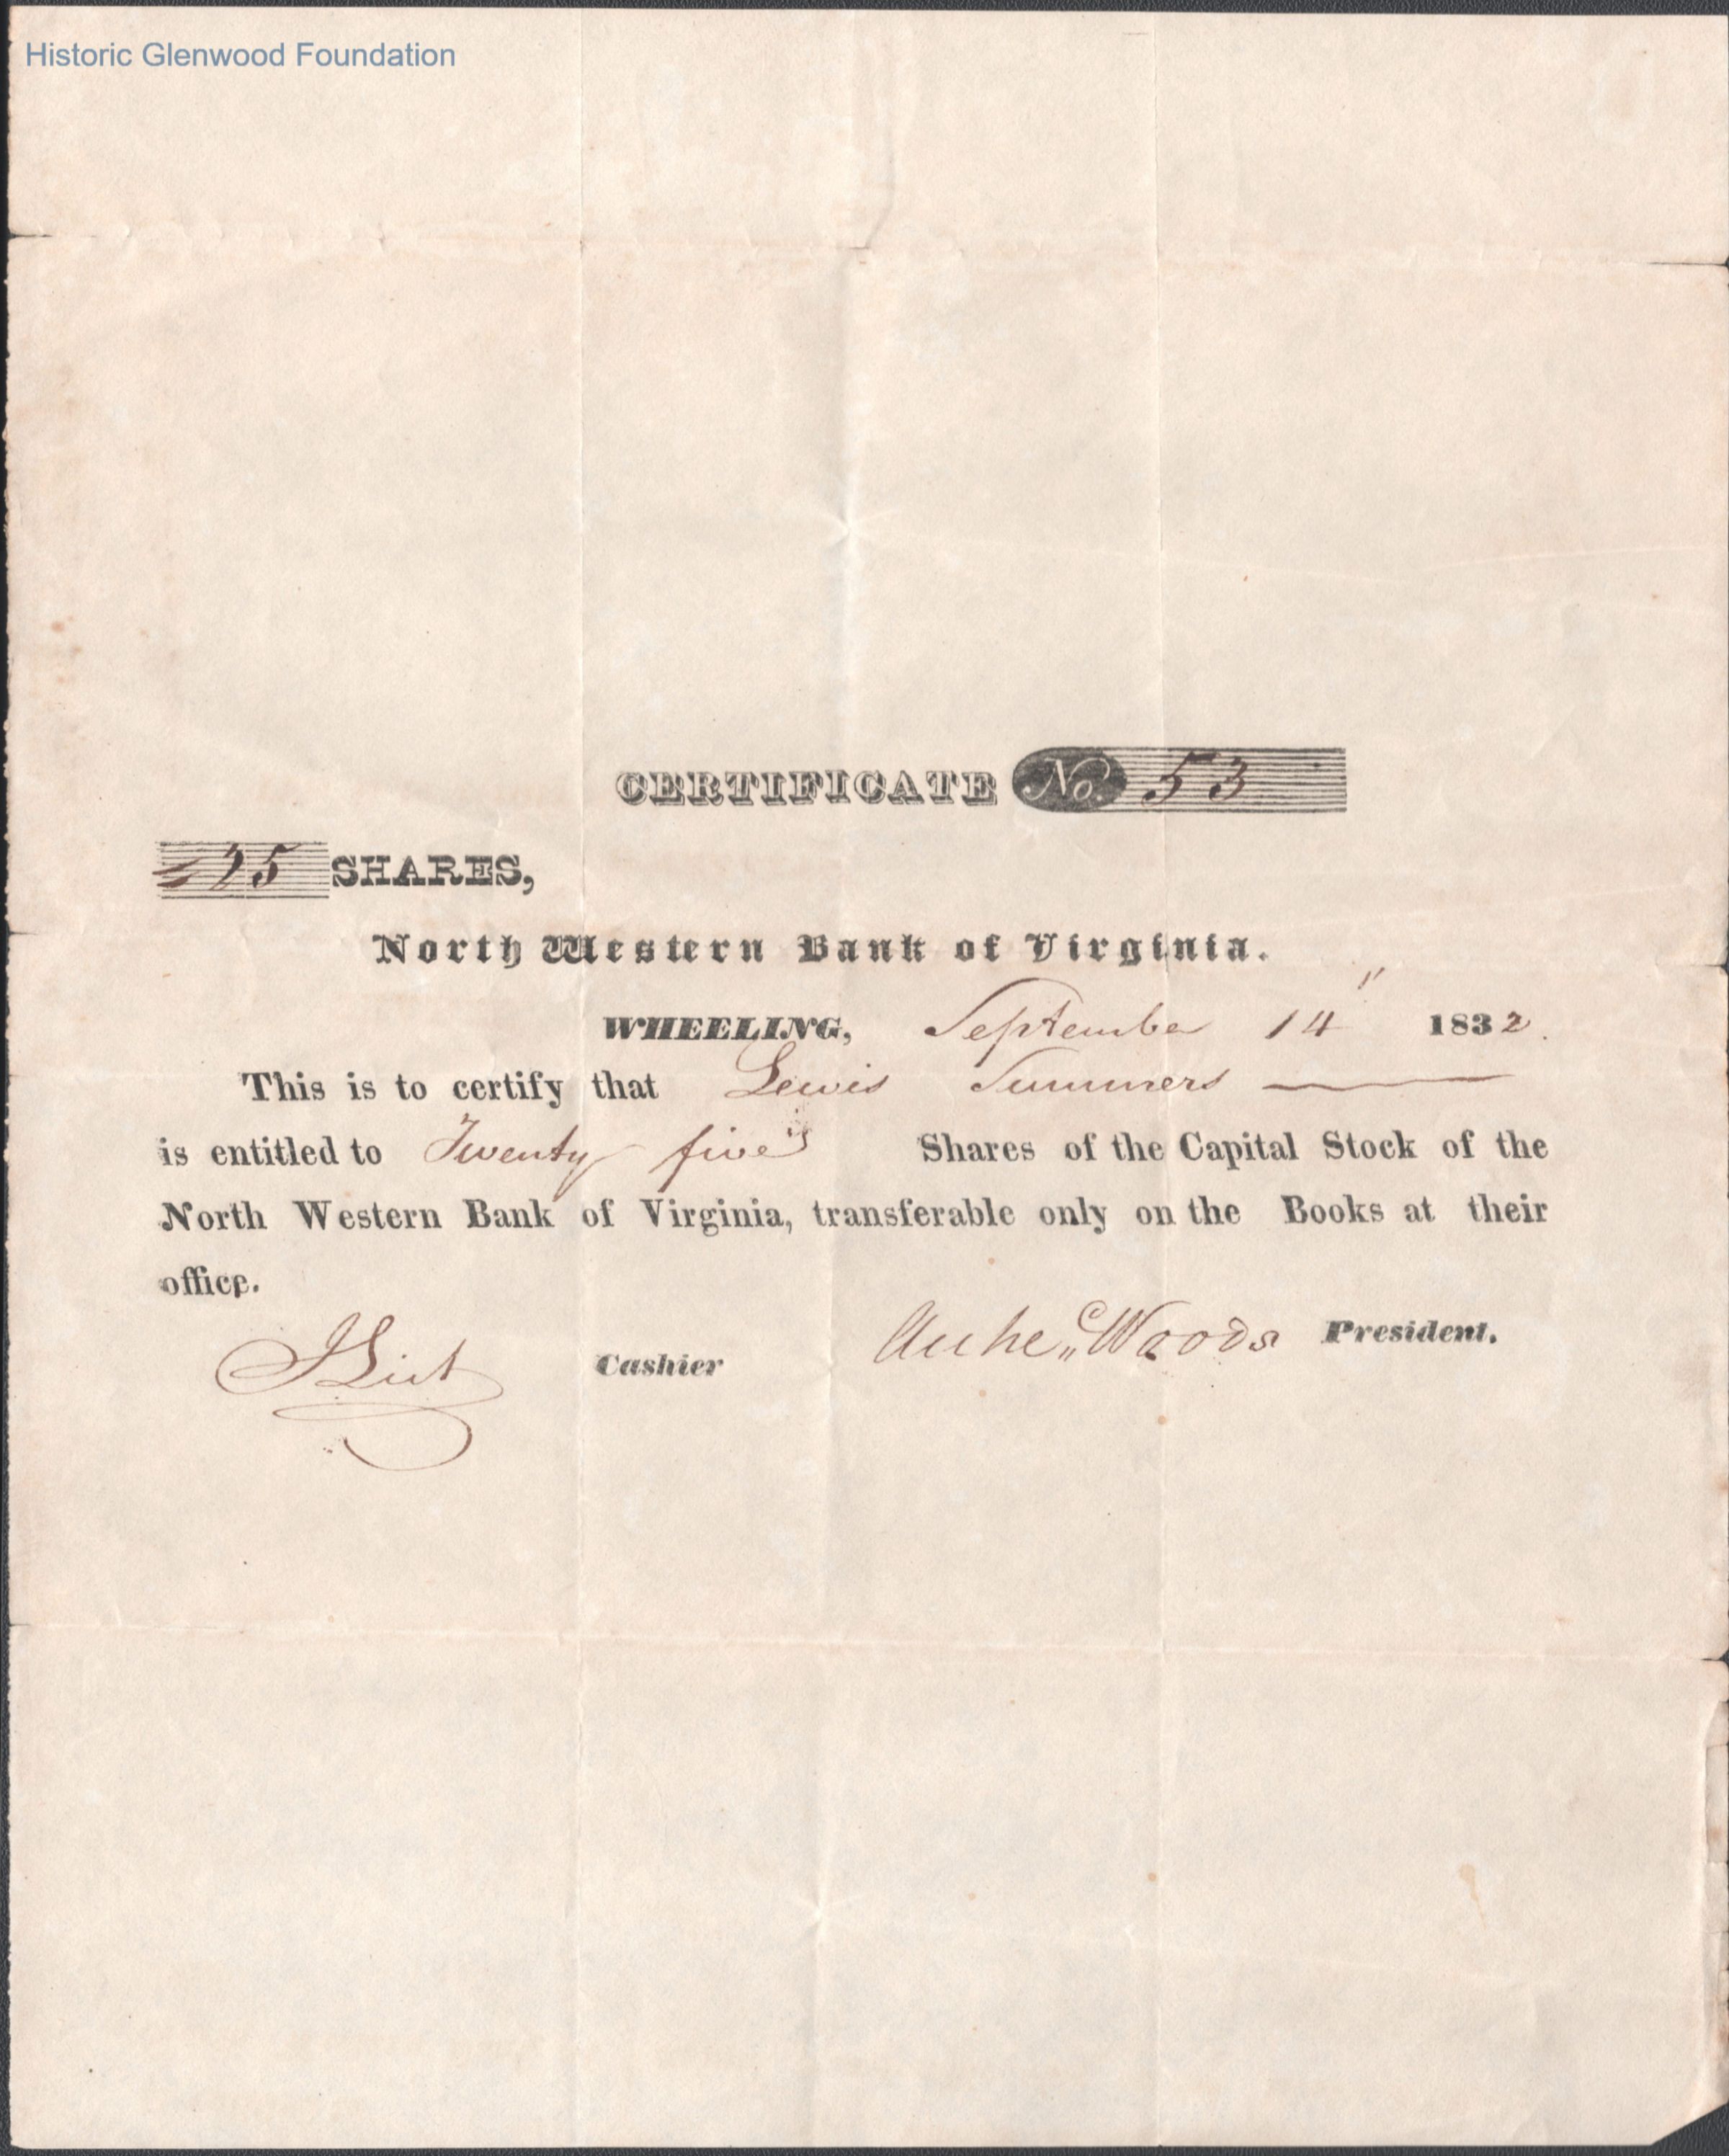 Historic Glenwood Foundation
CERTIFICATE No. 53
25 SHARES,
North Western Bank of Virginia.
WHEELING, September 14" 1832.
This is to certify that Lewis Summers
is entitled to Twenty five Shares of the Capital Stock of the
North Western Bank of Virginia, transferable only on the Books at their
office.
Cashier Woods President.